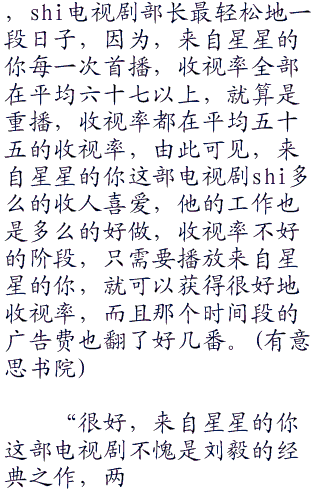 ，shi电视剧部长最轻松地一
段日子，因为，来自星星的
你每一次首播，收视率全部
在平均六十七以上，就算是
重播，收视率都在平均五十
五的收视率，由此可见，来
自星星的你这部电视剧shi多
么的收人喜爱，他的工作也
是多么的好做，收视率不好
的阶段，只需要播放来自星
星的你，就可以获得很好地
收视率，而且那个时间段的
广告费也翻了好几番。(有意
思书院)
“很好，来自星星的你
这部电视剧不愧是刘毅的经
典之作，两